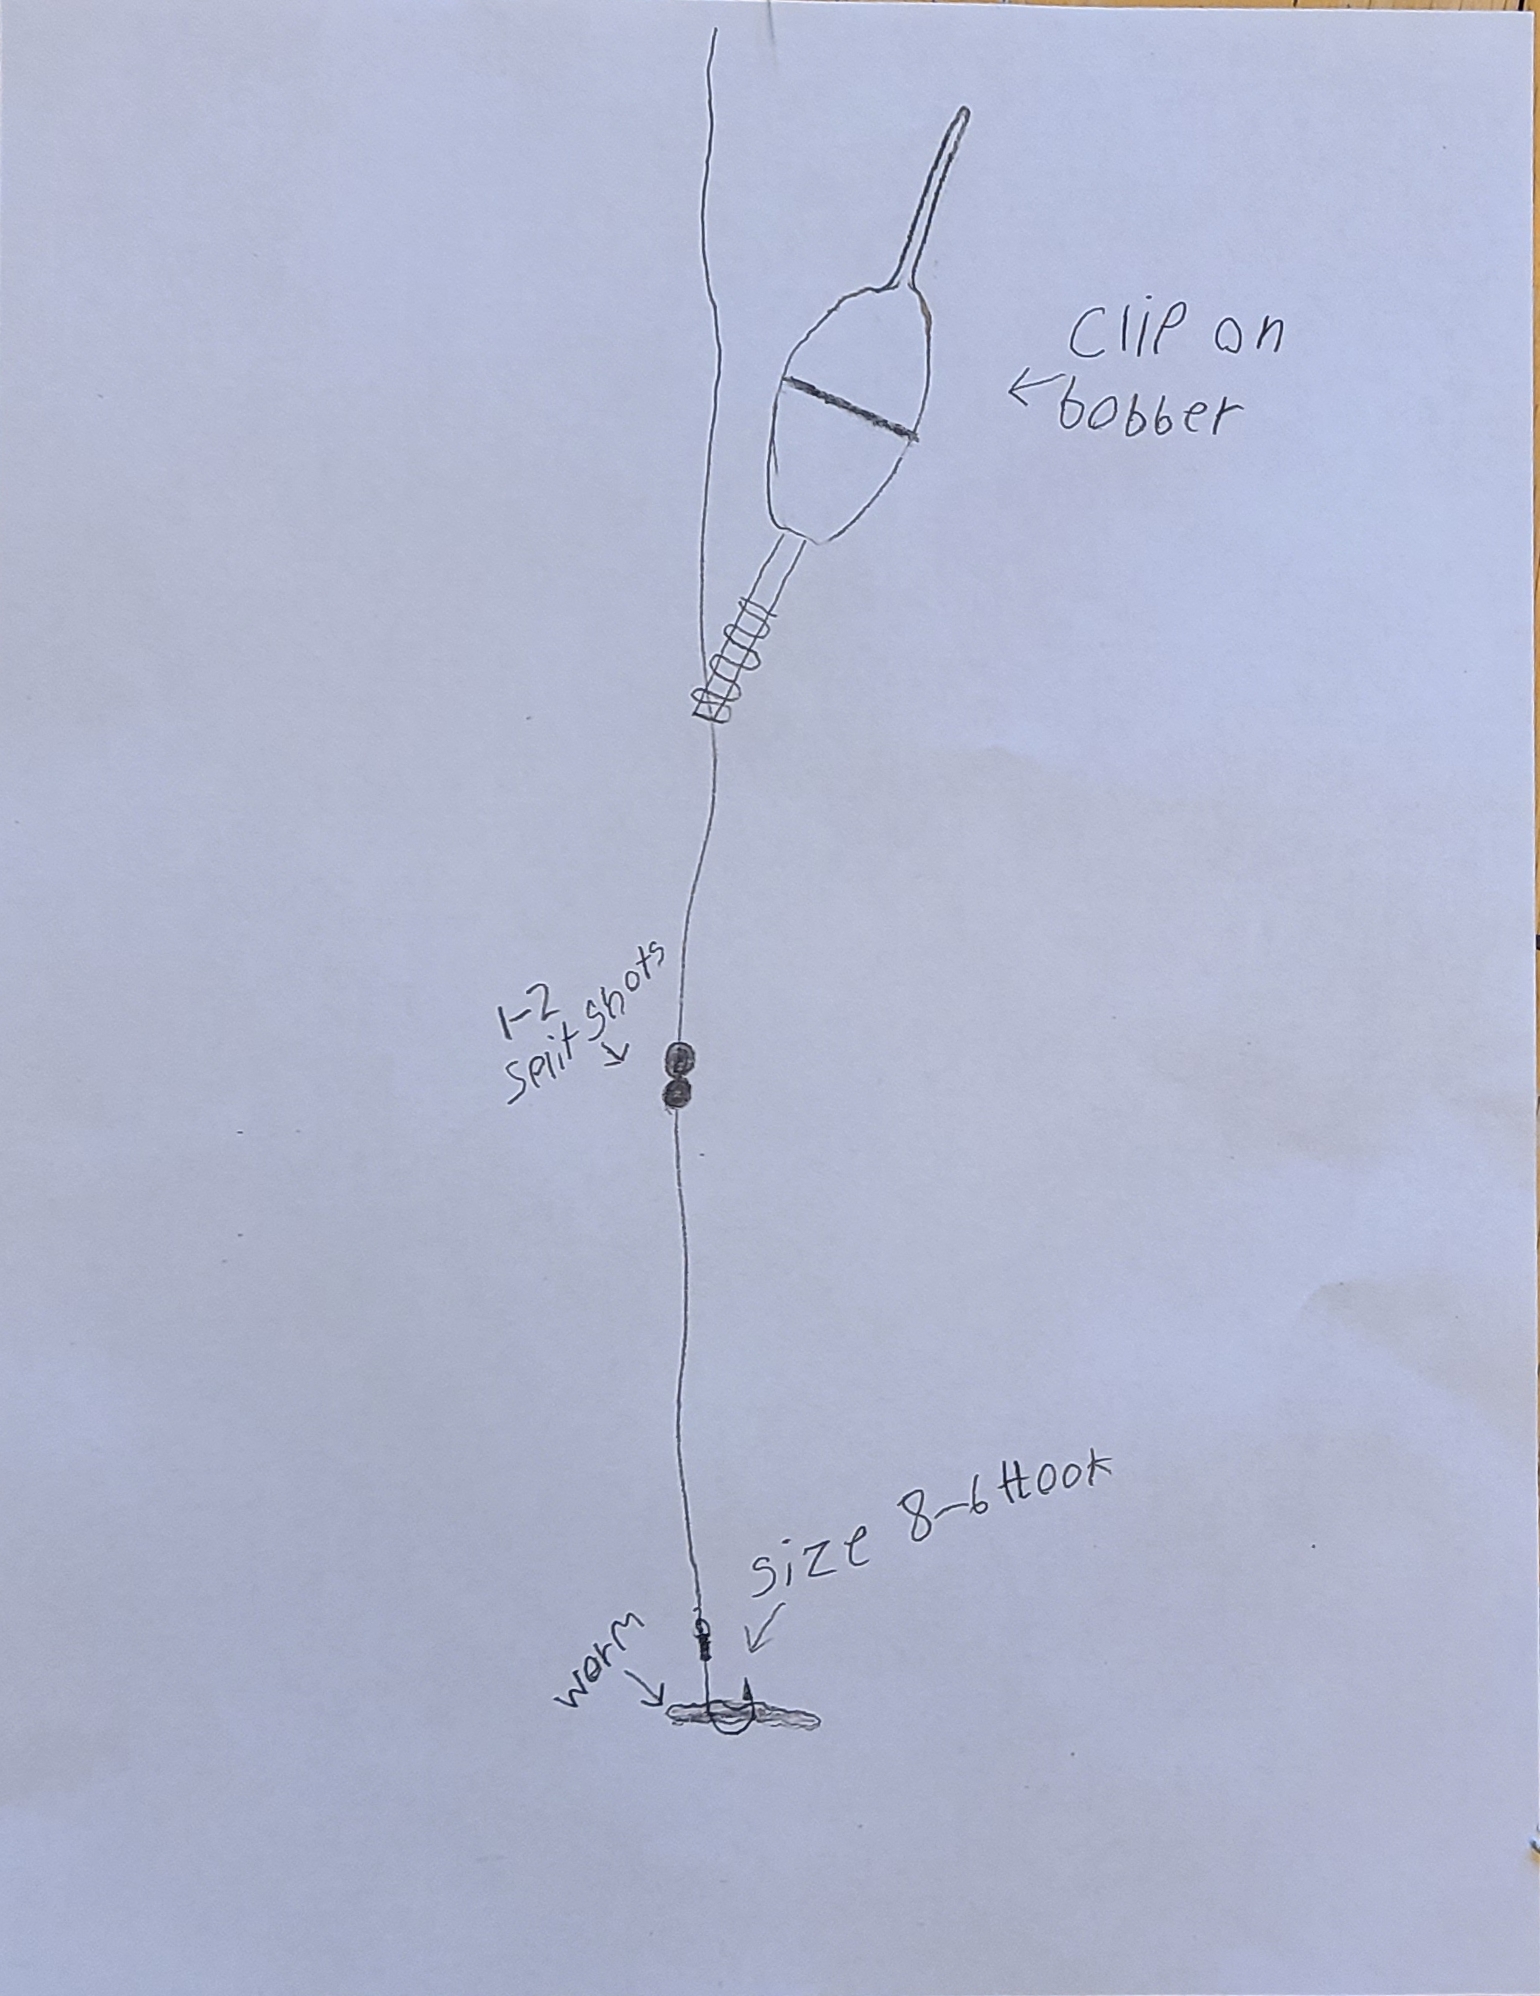 Clip on
bobber
1-2
Split shots
Size 8-6 Hook
worm